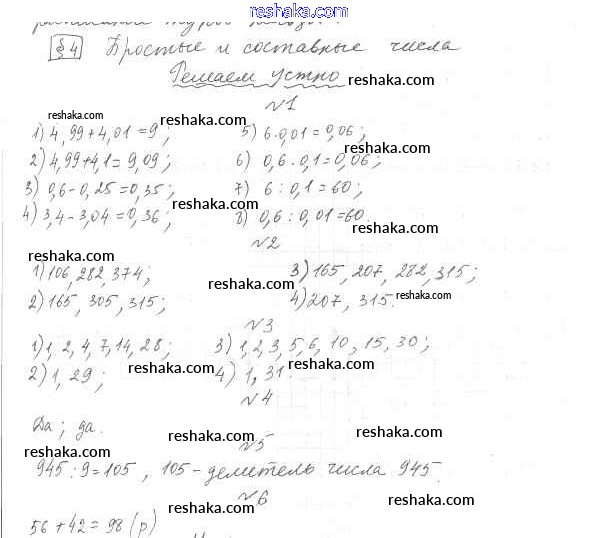 reshaka.com
§4 Простые и составные числа
Решаем устно reshaka.com
№1
reshaka.com reshaka.com
1) 4,99+4,01=9; 5) 6·0,01=0,06;
reshaka.com
2) 4,99+4,1=9,09; 6) 0,6·0,1=0,06;
3) 0,6-0,25=0,35; 7) 6:0,1=60;
reshaka.com
4) 3,4-3,04=0,36; 8) 0,6:0,01=60.
reshaka.com
№2
reshaka.com
1) 106, 282, 374; 3) 165, 207, 282, 315;
reshaka.com
2) 165, 305, 315; 4) 207, 315. reshaka.com
№3
reshaka.com
1) 1, 2, 4, 7, 14, 28; 3) 1, 2, 3, 5, 6, 10, 15, 30;
reshaka.com reshaka.com
2) 1, 29; 4) 1, 31.
№4
Да; да.
reshaka.com reshaka.com
№5
reshaka.com
945:9=105, 105-делитель числа 945.
№6
reshaka.com reshaka.com
56+42=98 (р)